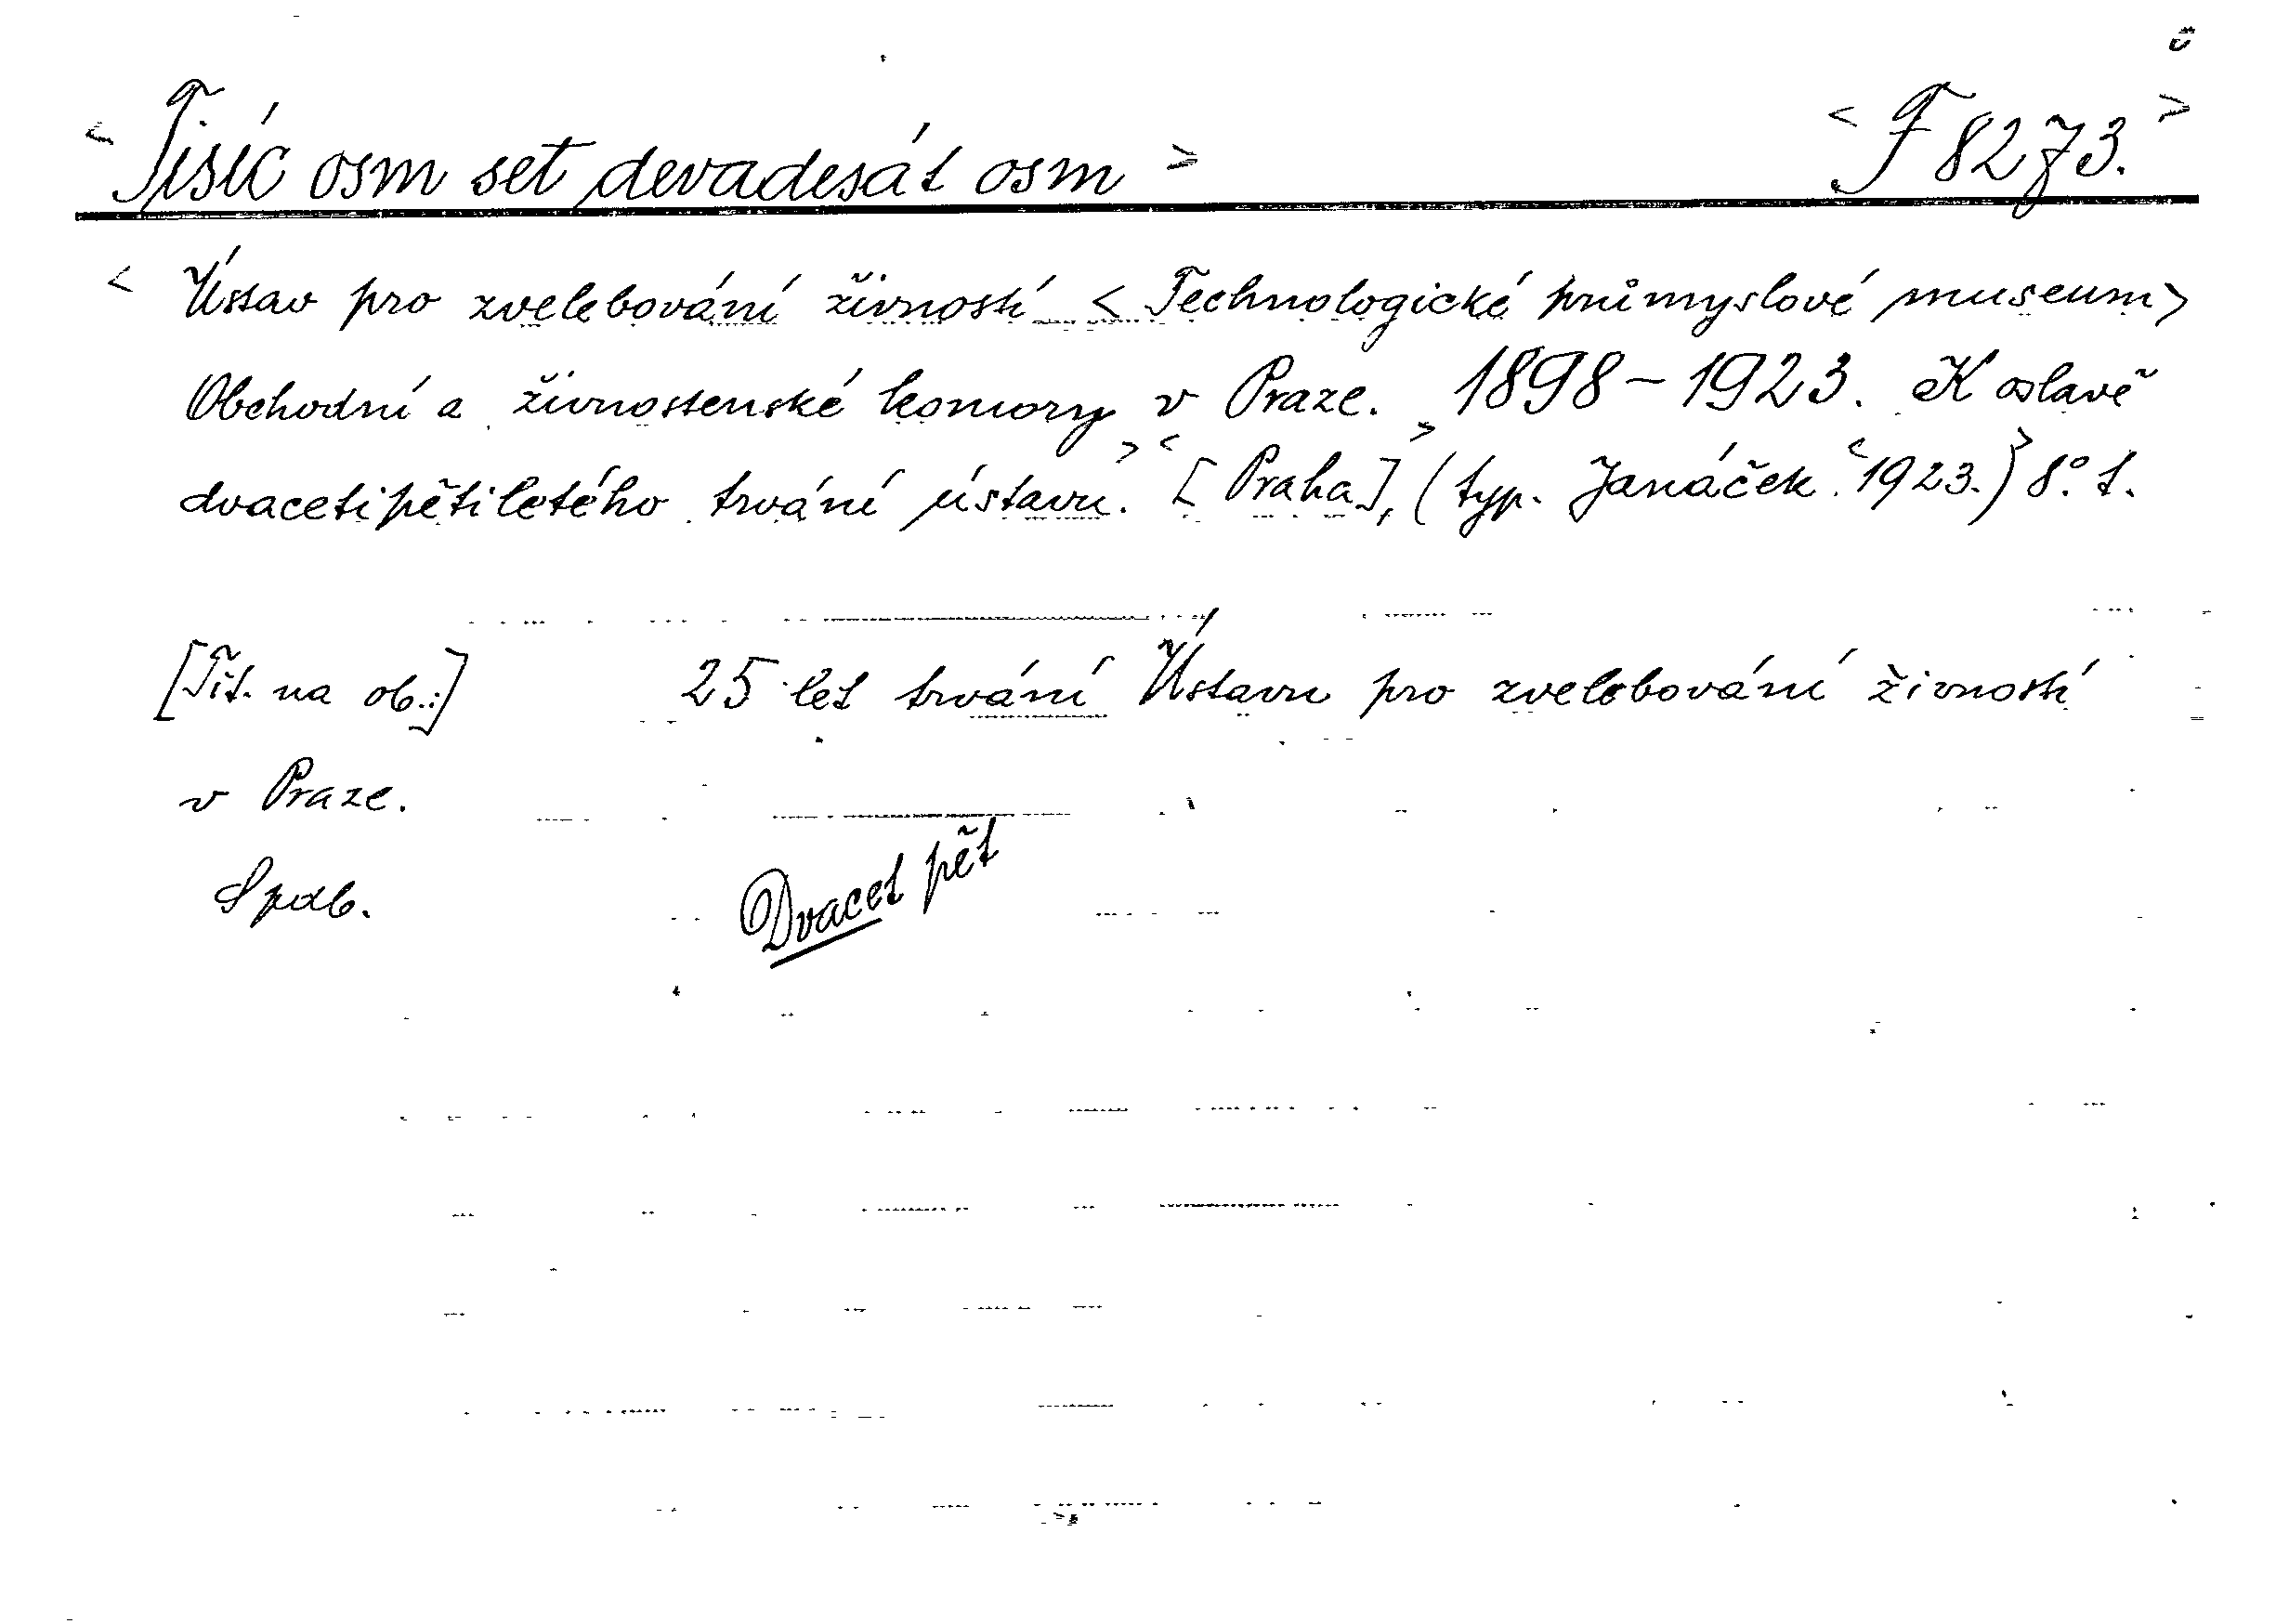 < Tisíc osm set devadesát osm > < F 8273. >
< Ústav pro zvelebování živností < Technologické průmyslové museum >
Obchodní a živnostenské komory v Praze. 1898-1923. > K oslavě
dvacetipětiletého trvání ústavu. > < [Praha], (typ. Janáček < 1923.) > 8°. t.
[Tit. na ob.:] 25 let trvání Ústavu pro zvelebování živností
v Praze.
Dvacet pět